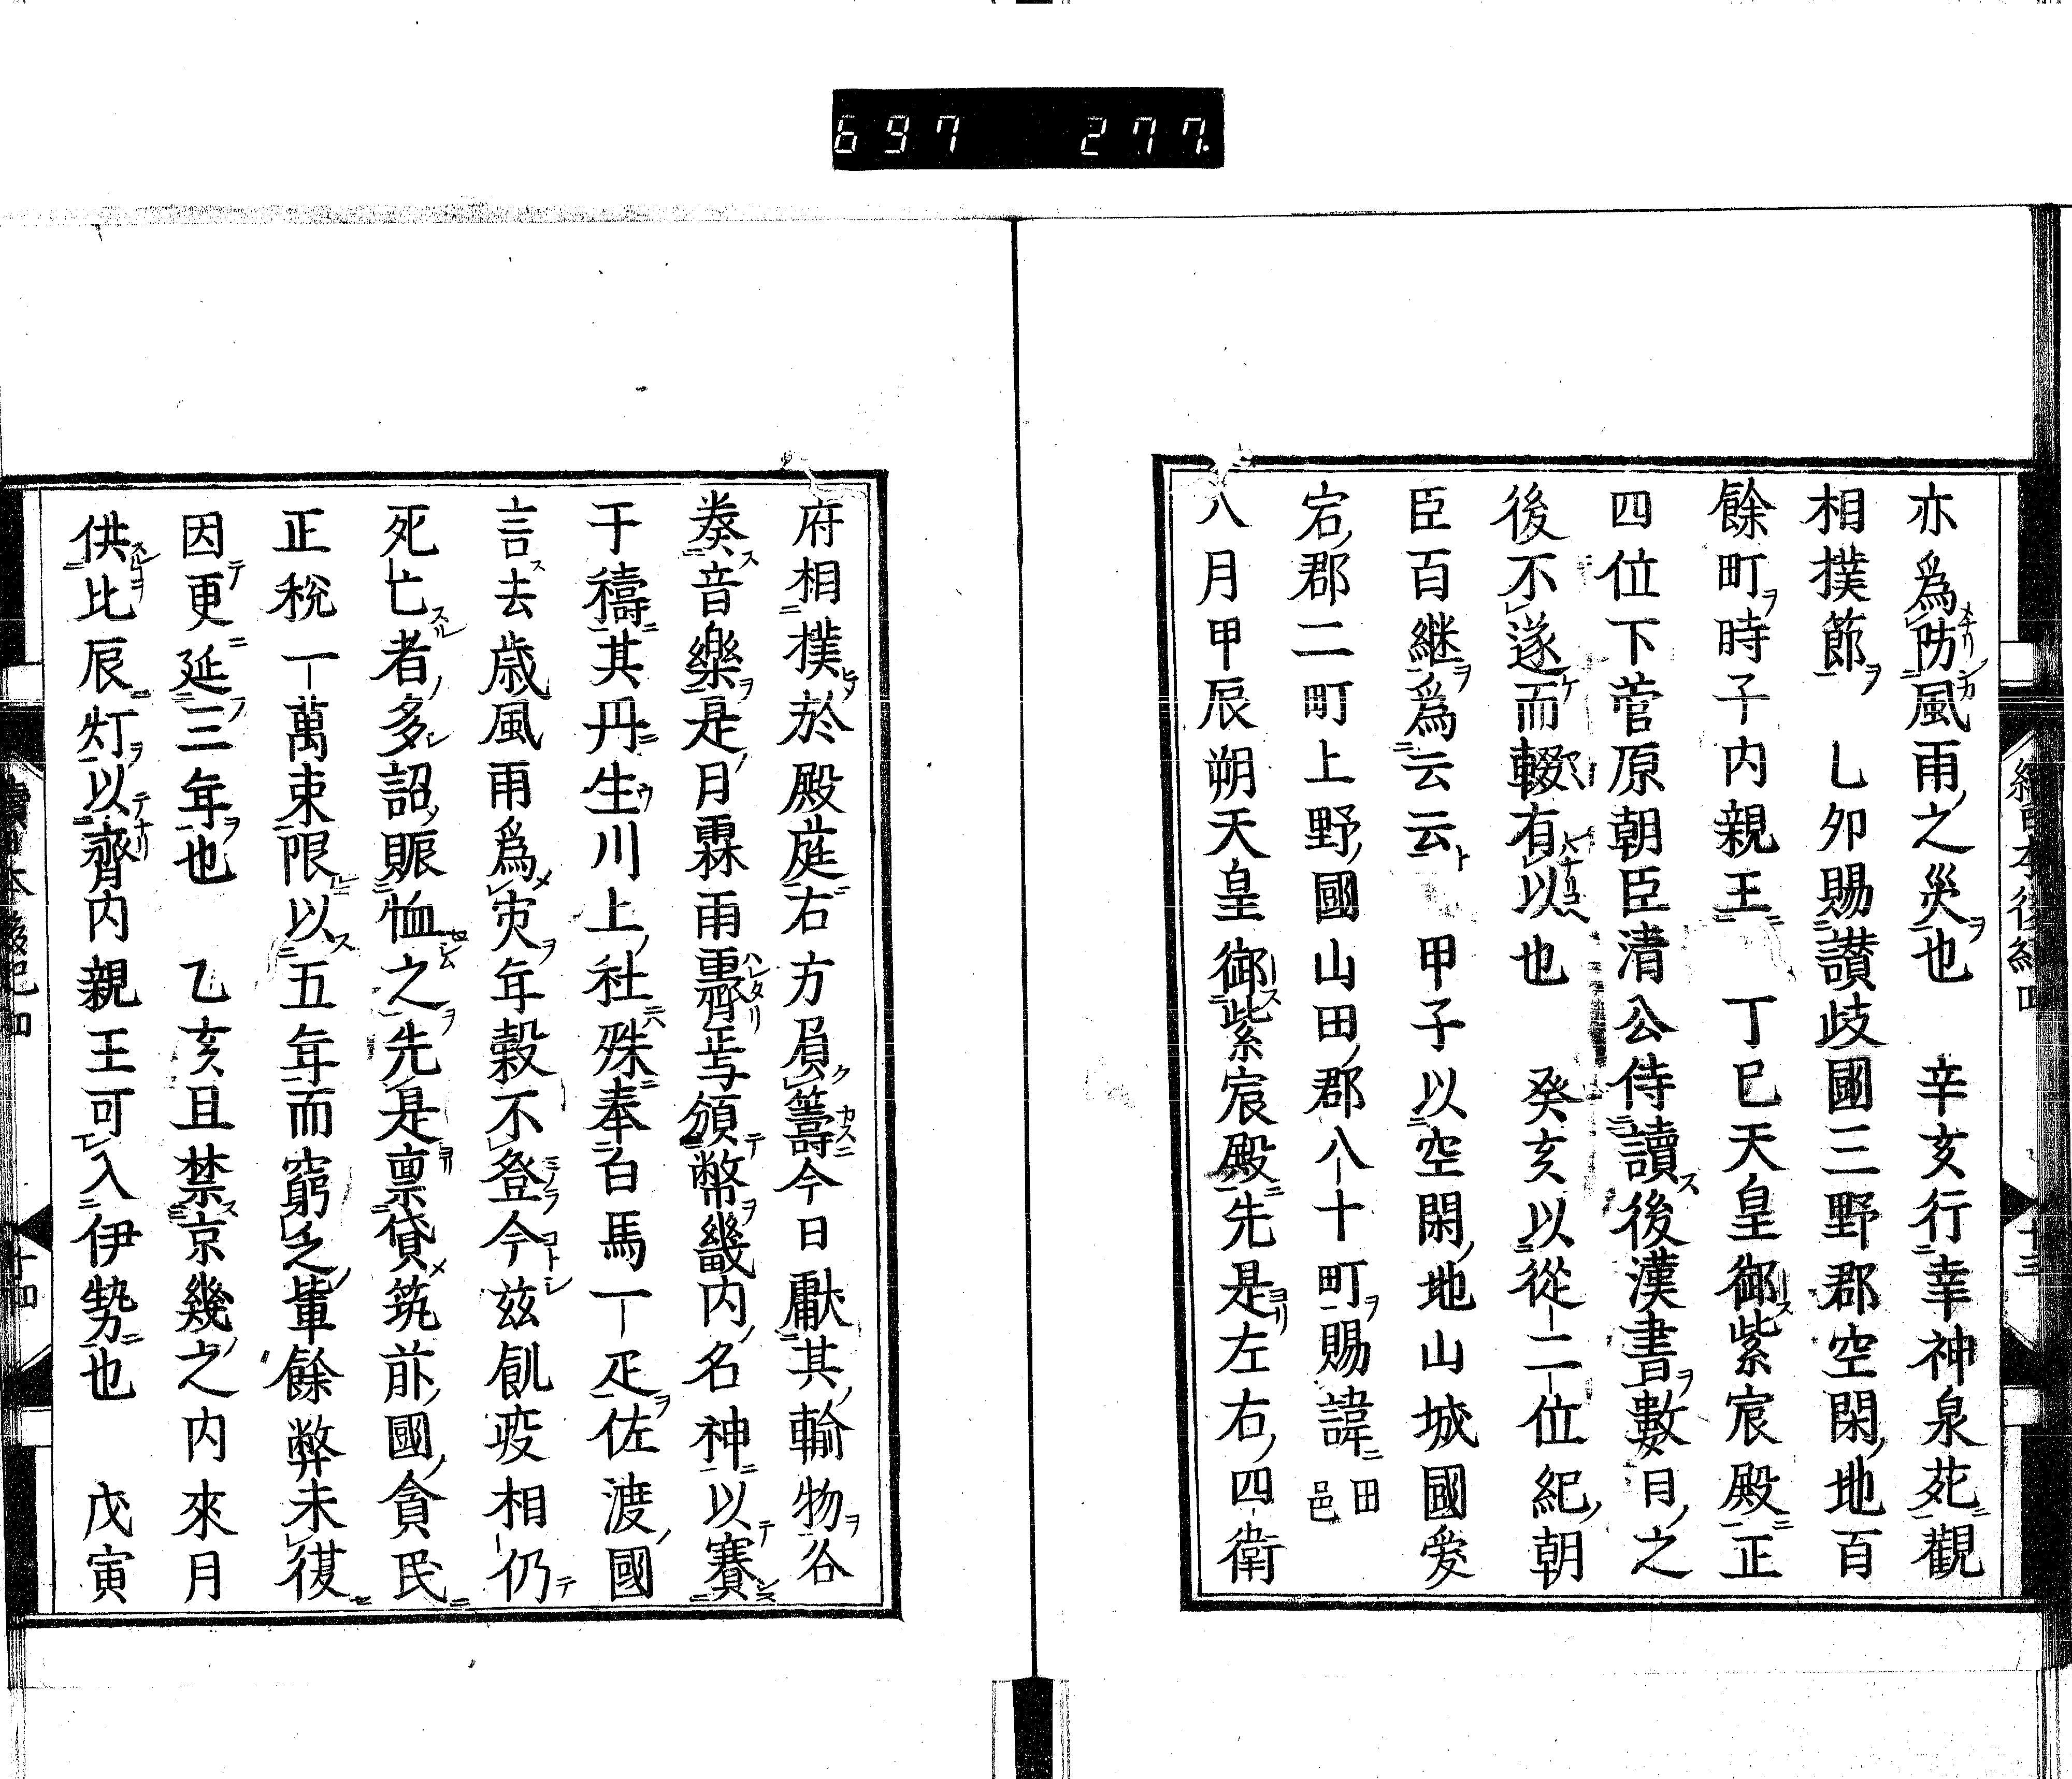 697 277.
亦爲防風雨之災也　辛亥行幸神泉苑觀
相撲節　乚夘賜讃歧國三野郡空閑地百
餘町時子内親王　丁巳天皇御紫宸殿正
四位下菅原朝臣清公侍讀後漢書數日之
後不遂而輟有以也　癸亥以從二位紀朝
臣百継爲云云　甲子以空閑地山城國愛
宕郡二町上野國山田郡八十町賜諱田邑
八月甲辰朔天皇御紫宸殿先是左右四衛
府相撲於殿庭右方屓籌今日獻其輸物各
奏音樂是月霖雨霽焉頒幣畿内名神以賽
于禱其丹生川上社殊奉白馬一疋佐渡國
言去歳風雨爲灾年穀不登今兹飢疫相仍
死亡者多詔賑恤之先是禀貸筑前國貧民
正税一萬束限以五年而窮乏軰餘弊未復
因更延三年也　乙亥且禁京幾之内來月
供北辰灯以齋内親王可入伊勢也　戊寅